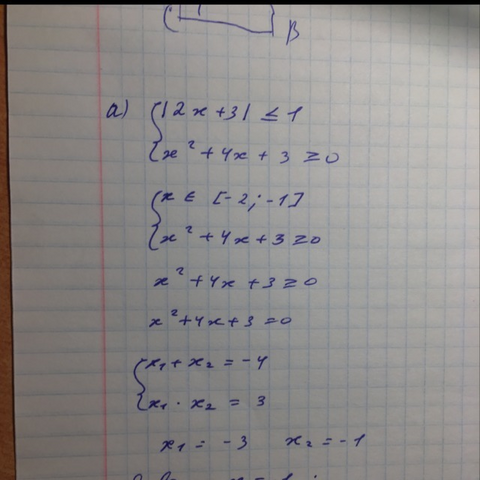 B
а) {|2x+3| ≤ 1
{x²+4x+3 ≥ 0
{x ∈ [-2; -1]
{x²+4x+3 ≥ 0
x²+4x+3 ≥ 0
x²+4x+3 = 0
{x₁+x₂ = -4
{x₁·x₂ = 3
x₁ = -3 x₂ = -1